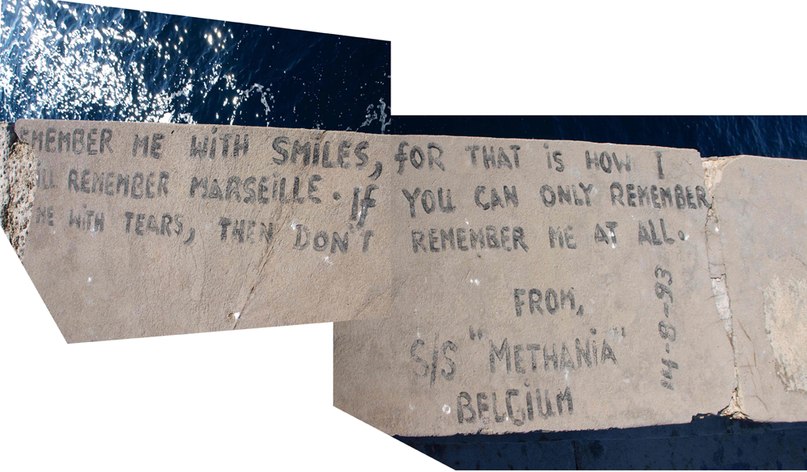 EMEMBER ME WITH SMILES, FOR THAT IS HOW I
ILL REMEMBER MARSEILLE. If YOU CAN ONLY REMEMBER
ME WITH TEARS, THEN DON'T REMEMBER ME AT ALL.
FROM,
S/S "METHANIA"
BELGIUM
14-8-93